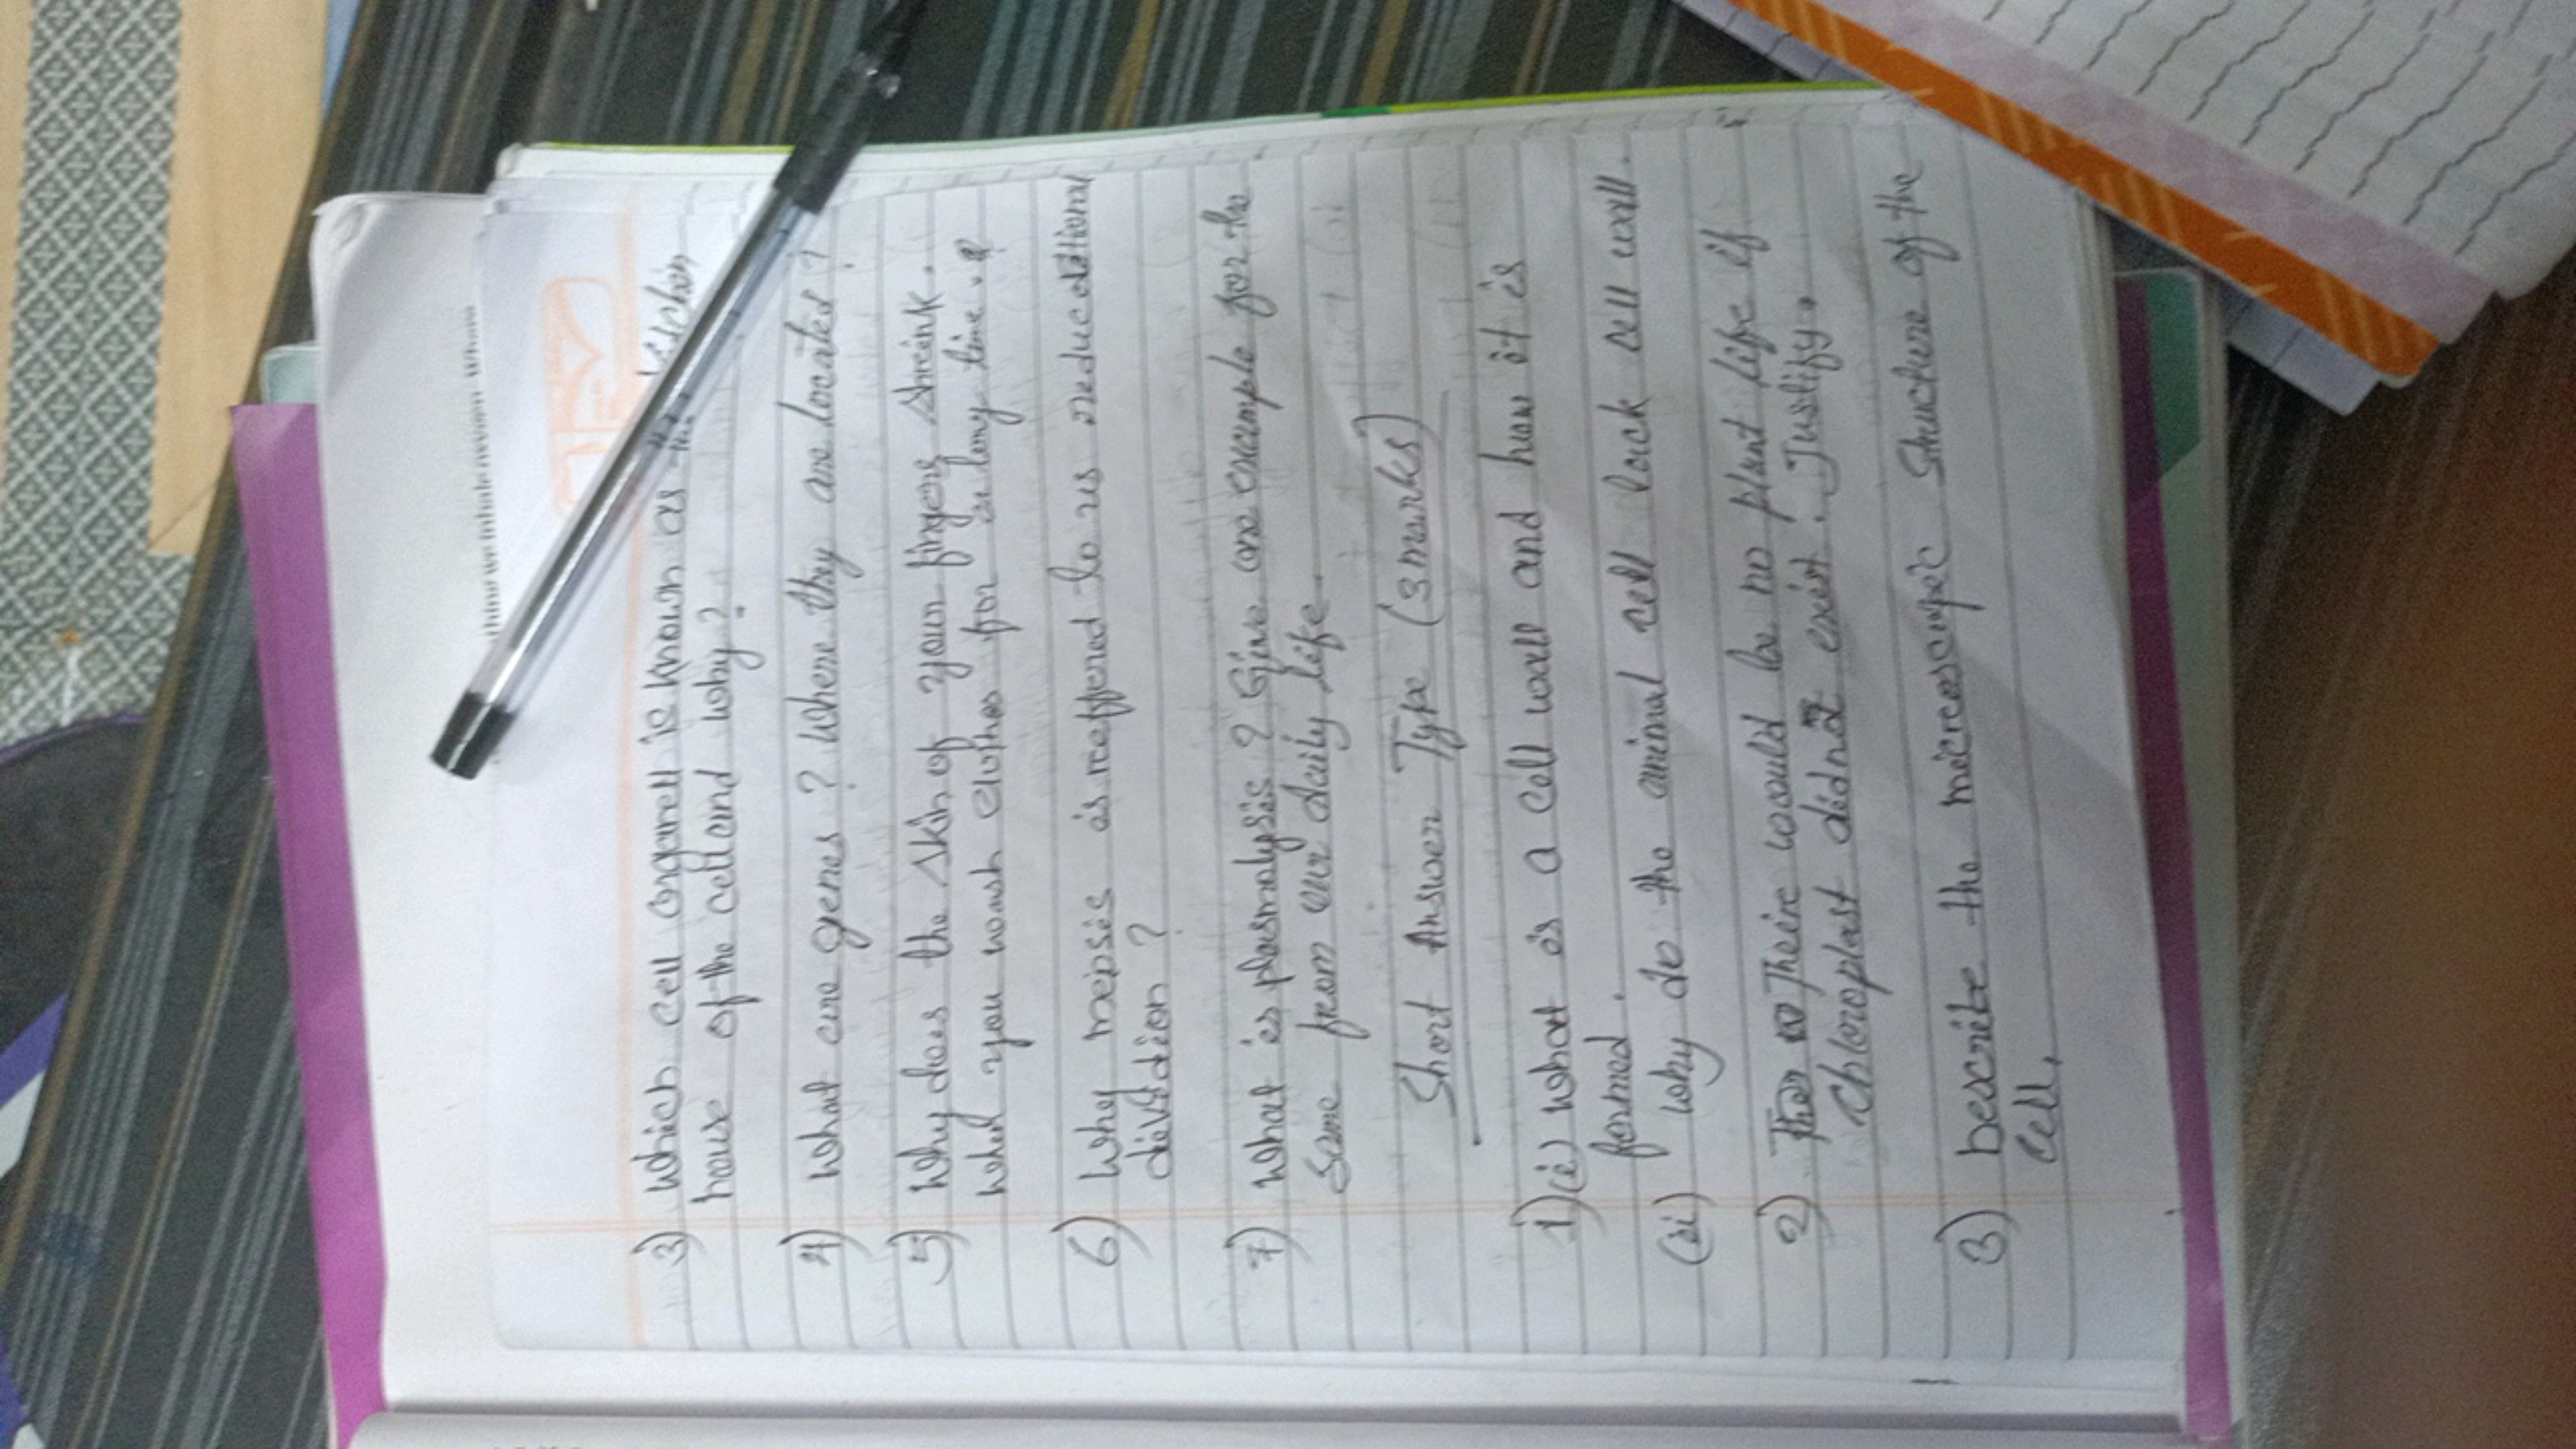 thing we inhale nevern Whara
3) Which cell organell is known as the kitchen
house of the cell and why?
4) What are genes? Where they are located?
5) Why does the skin of your fingers shrink
when you wash clothes for a long time.?
6) Why meisis is reffered to us reductional
division?
7) What is plasmolysis? Give one example for the
same from our daily life.
Short Answer Type (3 marks)
1)(i) What is a cell wall and how it is
formed.
(ii) Why do the animal cell lack cell wall.
2) Their would be no plant life if
chloroplast didnot exist. Justify.
3) Describe the microscopic structure of the
cell.